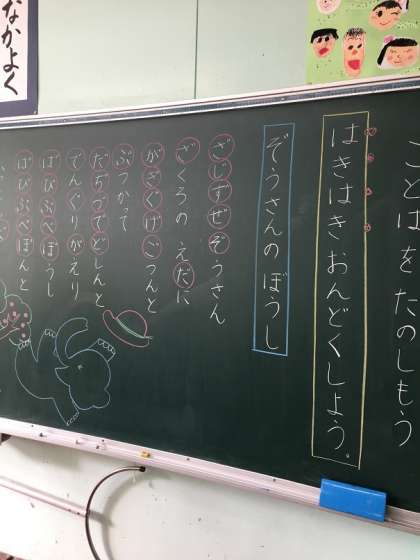 ことばをたのしもう
はきはきおんどくしよう。
ぞうさんのぼうし
ざじずぜぞうさん
ざくろの えだに
がぎぐげごつんと
ぶつかって
だぢづでどしんと
でんぐりがえり
ばびぶべぼうし
ぱぴぷぺぽんと
なかよく